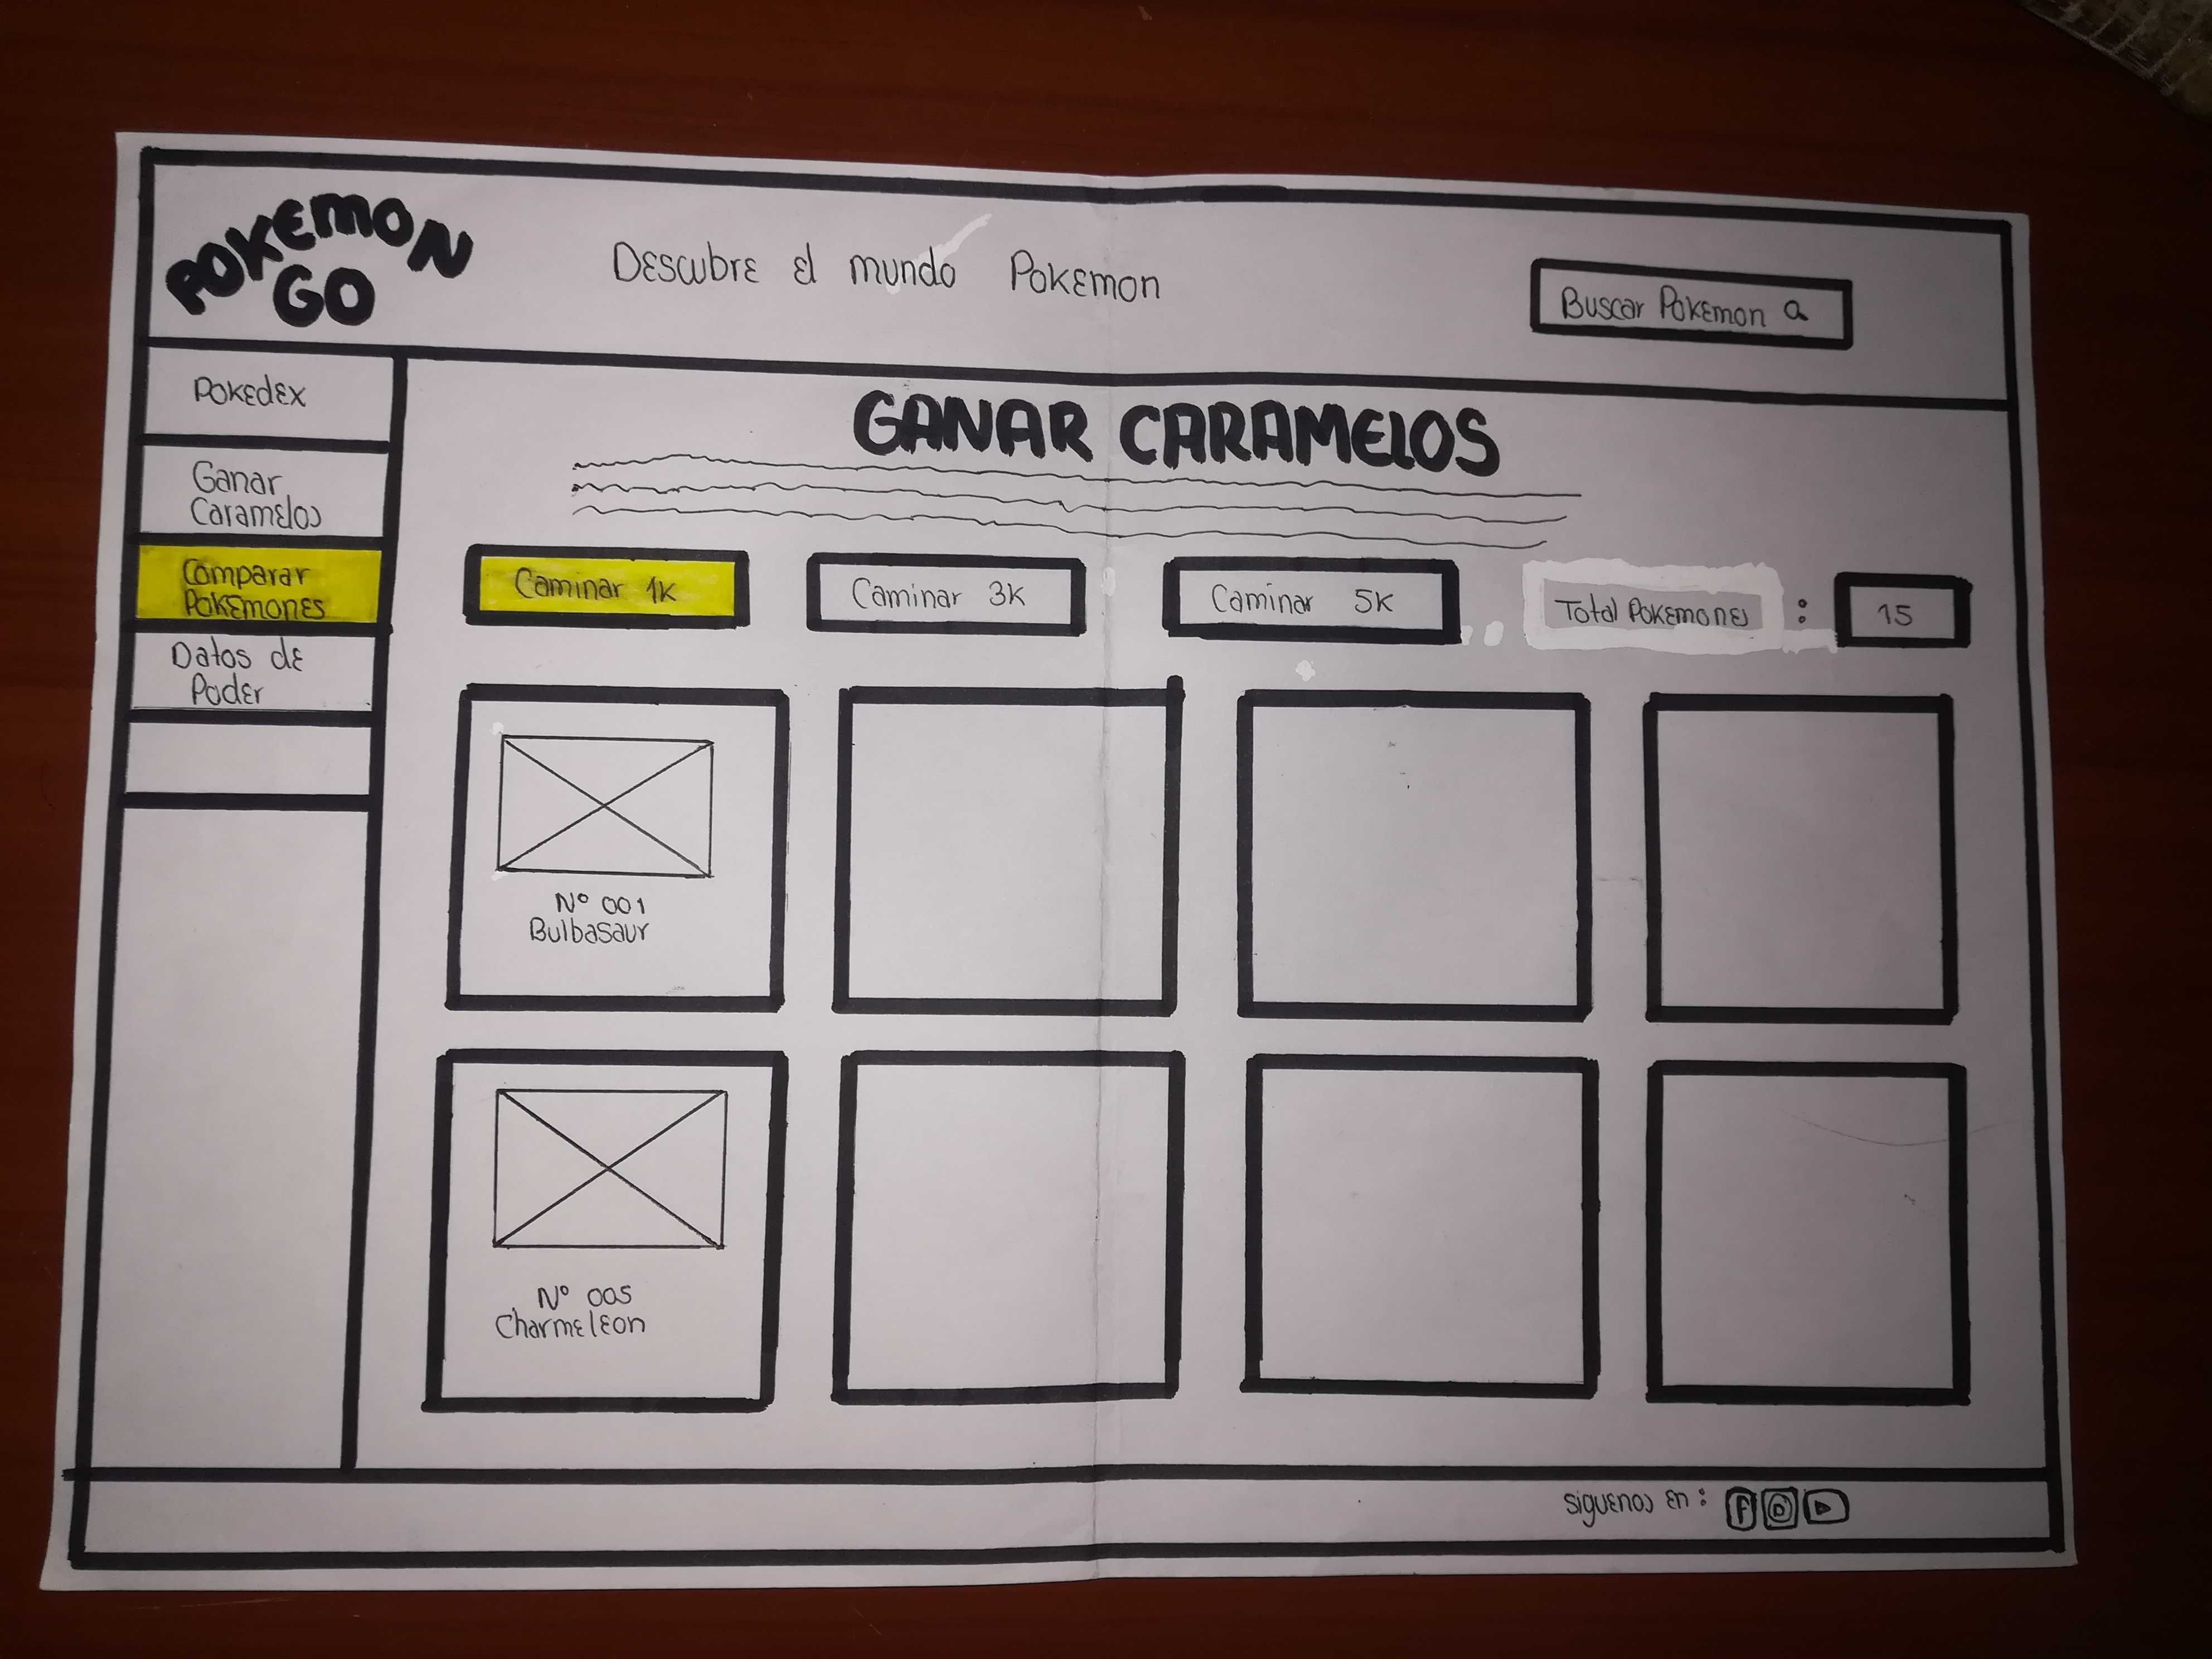 POKEMON
GO
Descubre el mundo Pokemon
Buscar Pokemon
Pokedex
Ganar
Caramelos
Comparar
Pokemones
Datos de
Poder
GANAR CARAMELOS
Caminar 1K
Caminar 3K
Caminar 5K
Total Pokemones :
15
N° 001
Bulbasaur
N° 005
Charmeleon
siguenos en :